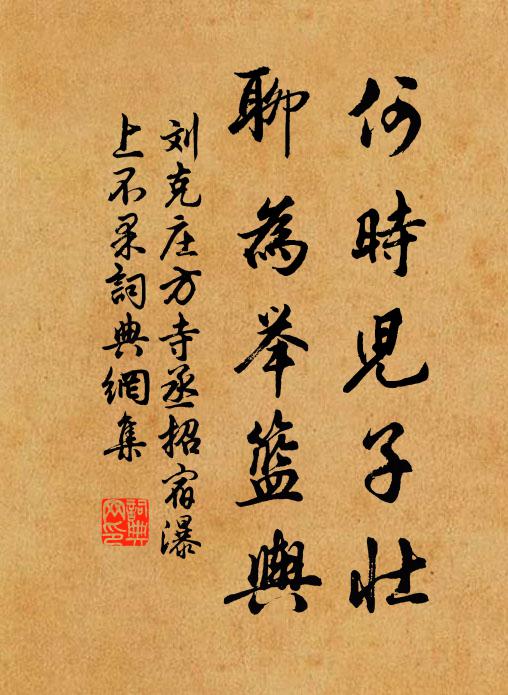 何時児子壮
聊為举籃輿
刘克庄方寺丞招宿瀑
上不果詞典網集
詞典网印